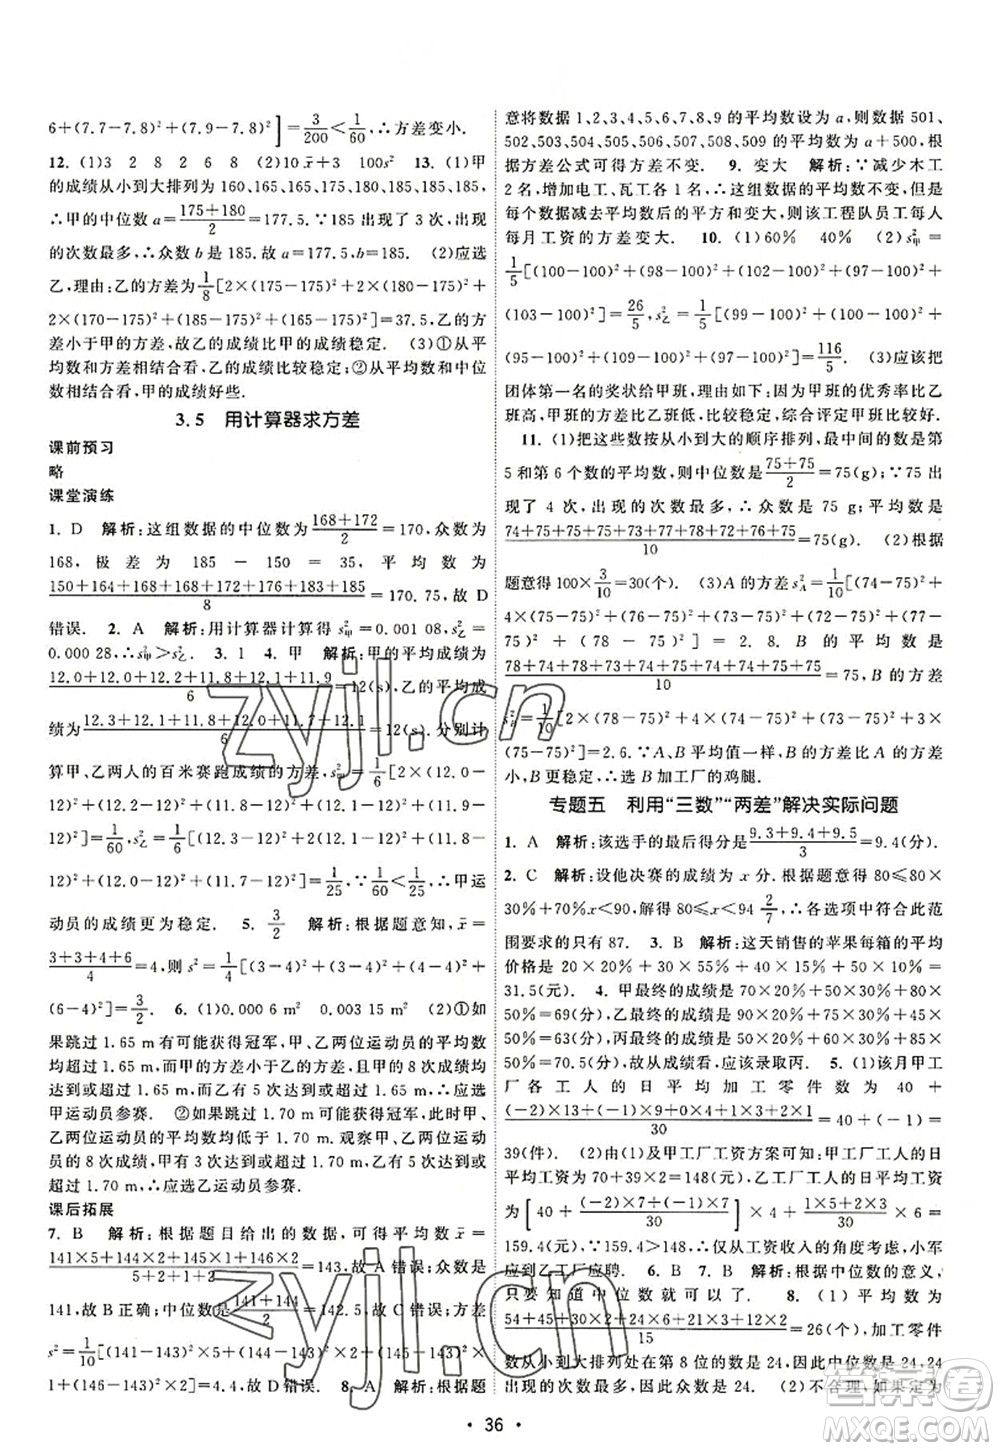 6+(7.7-7.8)²+(7.9-7.8)²]=3/200<1/60,∴方差变小.
12. (1)3 2 8 2 6 8 (2)10x̄+3 100s² 13. (1)甲
的成绩从小到大排列为 160,165,165,175,180,185,185,185,
∴甲的中位数 a=(175+180)/2=177.5.∵185 出现了 3 次,出现
的次数最多,∴众数 b 是 185.故 a=177.5,b=185. (2)应选
乙,理由:乙的方差为1/8[2×(175-175)²+2×(180-175)²+
2×(170-175)²+(185-175)²+(165-175)²]=37.5,乙的方
差小于甲的方差,故乙的成绩比甲的成绩稳定. (3)①从平
均数和方差相结合看,乙的成绩比较稳定;②从平均数和中位
数相结合看,甲的成绩好些.
3.5 用计算器求方差
课前预习
略
课堂演练
1. D 解析:这组数据的中位数为(168+172)/2=170,众数为
168,极差为 185-150=35,平均数为
(150+164+168+168+172+176+183+185)/8=170.75,故 D
错误. 2. A 解析:用计算器计算得 s²甲=0.001 08,s²乙=
0.000 28,∴s²甲>s²乙. 3. 1 4. 甲 解析:甲的平均成绩为
(12.0+12.0+12.2+11.8+12.1+11.9)/6=12(s),乙的平均成
绩为(12.3+12.1+11.8+12.0+11.7+12.1)/6=12(s),分别计
算甲、乙两人的百米赛跑成绩的方差 s²甲=1/6[2×(12.0-
12)²+(12.2-12)²+(11.8-12)²+(12.1-12)²+(11.9-
12)²]=1/60,s²乙=1/6[(12.3-12)²+2×(12.1-12)²+(11.8-
12)²+(12.0-12)²+(11.7-12)²]=1/25,∵1/60<1/25,∴甲运
动员的成绩更为稳定. 5. 3/2 解析:根据题意知,x̄=
(3+3+4+6)/4=4,则 s²=1/4[(3-4)²+(3-4)²+(4-4)²+
(6-4)²]=3/2. 6. (1)0.000 6 m² 0.003 15 m² (2)①如
果跳过 1.65 m 就可能获得冠军,甲、乙两位运动员的平均数
都超过 1.65 m,且甲的方差小于乙的方差,观察甲的 8 次成
绩都超过 1.65 m,乙有 5 次达到或超过 1.65 m,∴应选
甲运动员参赛. ②如果跳过 1.70 m 才能获得冠军,此时甲、
乙两位运动员的平均数均低于 1.70 m.观察甲、乙两位运动
员的 8 次成绩,甲有 3 次达到或超过 1.70 m,乙有 5 次达到
或超过 1.70 m,∴应选乙运动员参赛.
课后拓展
7. B 解析:根据题目给出的数据,可得平均数 x̄=
(141×5+144×2+145×1+146×2)/(5+2+1+2)=143,故 A 错误;众数是
141,故 B 正确;中位数是(141+144)/2=142.5,故 C 错误;方差
s²=1/10[(141-143)²×5+(144-143)²×2+(145-143)²×
1+(146-143)²×2]=4.4,故 D 错误. 8. A 解析:根据题
意将数据 1、2、3、4、5、6、7、8、9 的平均数设为 a,则数据 501、
502、503、504、505、506、507、508、509 的平均数为 a+500,根
据方差公式可得方差不变. 9. 变大 解析:∵减少木工
2 名,增加电工、瓦工各 1 名,∴这组数据的平均数不变,但是
每个数据减去平均数后的平方和变大,则该工程队员工每人
每月工资的方差变大. 10. (1)60% 40% (2)s²甲=
1/5[(100-100)²+(98-100)²+(102-100)²+(97-100)²+
(103-100)²]=26/5,s²乙=1/5[(99-100)²+(100-100)²+
(95-100)²+(109-100)²+(97-100)²]=116/5. (3)应该把
团体第一名的奖状给甲班.理由如下:因为甲班的优秀率比乙
班高,甲班的方差比乙班低,比较稳定,综合评定甲班比较好.
11. (1)把这些数按从小到大的顺序排列,最中间的数是第
5 和第 6 个数的平均数,则中位数是(75+75)/2=75(g);∵75 出
现了 4 次,出现的次数最多,∴众数是 75 g;平均数是
(74+75+75+75+73+77+78+72+76+75)/10=75(g). (2)根据
题意得 100×3/10=30(个). (3)A 的方差 s²A=1/10[(74-75)²+
4×(75-75)²+(76-75)²+(73-75)²+(72-75)²+(77-
75)²+(78-75)²]=2.8,B 的平均数为
(78+74+78+73+74+75+74+74+75+75)/10=75,B 的方差
s²B=1/10[2×(78-75)²+4×(74-75)²+(73-75)²+3×
(75-75)²]=2.6.∵A、B 平均值一样,B 的方差比 A 的方差
小,B 更稳定,∴选 B 加工厂的鸡腿.
专题五 利用“三数”“两差”解决实际问题
1. A 解析:该选手的最后得分是(9.3+9.4+9.5)/3=9.4(分).
2. C 解析:设他决赛的成绩为 x 分.根据题意,得 80≤80×
30%+70%x≤86,解得 80≤x≤94 2/7,∴各选项中符合此范
围要求的只有 87. 3. B 解析:这天销售的苹果每箱的平均
价格是 20×20%+25×10%+30×30%+40×40%=
31.5(元). 4. 甲最终的成绩是 70×20%+80×30%+80×
50%=78(分),乙最终的成绩是 90×20%+70×30%+60×
50%=69(分),丙最终的成绩是 70×20%+90×30%+80×
50%=81(分),故从成绩看,应录取丙. 5. (1)该月甲工厂
各工人的日平均加工零件数为 40+
((-2)×13+(-1)×6+0×6+1×3+2×1×1)/30=40+(-1)=
39(件). (2)由(1)及甲工厂工资方案可知:甲工厂工人的日
平均工资为 70+39×2=148(元),乙工厂工人的日平均工资为
[40+((-2)×7+(-1)×6)/30]×3+(1×5+2×4)/30×6=
159.4(元).∵159.4>148,∴仅从工资收入的角度考虑,小军
应到乙工厂应聘. 6. B 7. B 解析:根据中位数的意义,
只要知道中位数就可以了. 8. (1)平均数为
(54+45+30×2+24×6+21×3+12×2)/15=26(个),加工零件
数从小到大排列处在第 8 位的是 24,因此中位数是 24,24
出现的次数最多,因此众数是 24. (2)不合理,如果定为
· 36 ·
zyjl.cn
zyjl.cn
答案圈
MXQE.COM